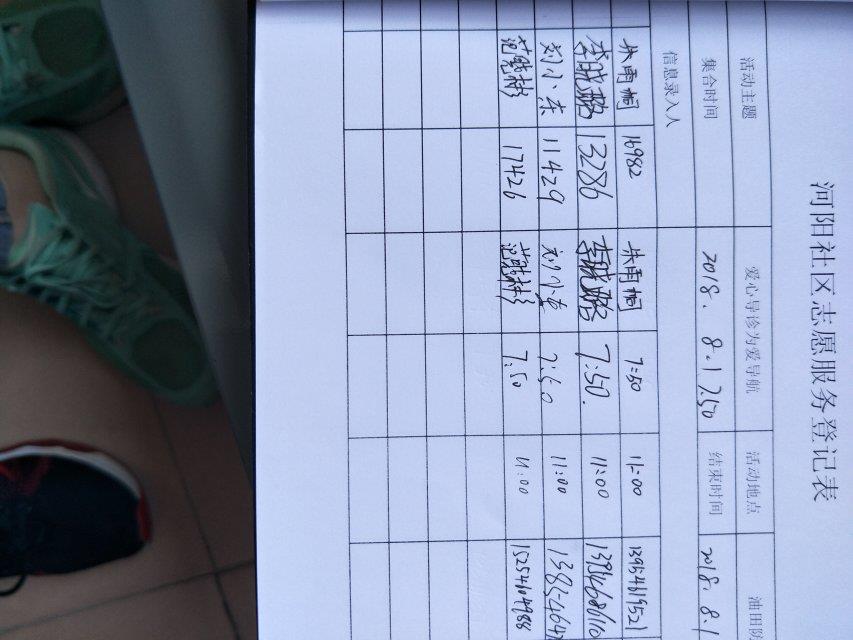 河阳社区志愿服务登记表
活动主题 爱心导诊为爱导航 活动地点 油田
集合时间 2018.8.1 7:50 结束时间 2018.8.1
信息录入人
朱雨桐 16982 朱雨桐 7:50 11:00 13954619521
李晓璐 13286 李晓璐 7:50. 11:00
刘小东 11429 7:50 11:00
17426 7:50 11:00 15254104988